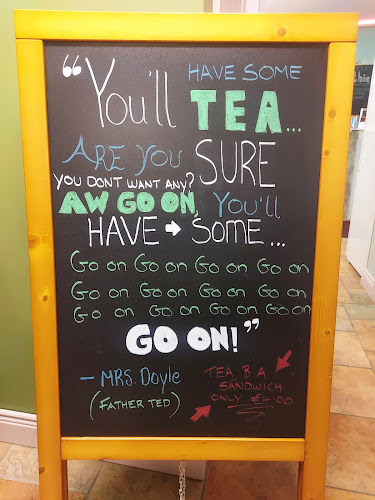 “You'll HAVE SOME
TEA...
ARE YOU SURE
YOU DONT WANT ANY?
AW GO ON, You'll
HAVE → SOME...
Go on Go on Go on Go on
Go on Go on Go on Go on
Go on Go on Go on Go on
GO ON!”
– MRS. Doyle
(FATHER TED)
TEA & A
SANDWICH
ONLY €4.00